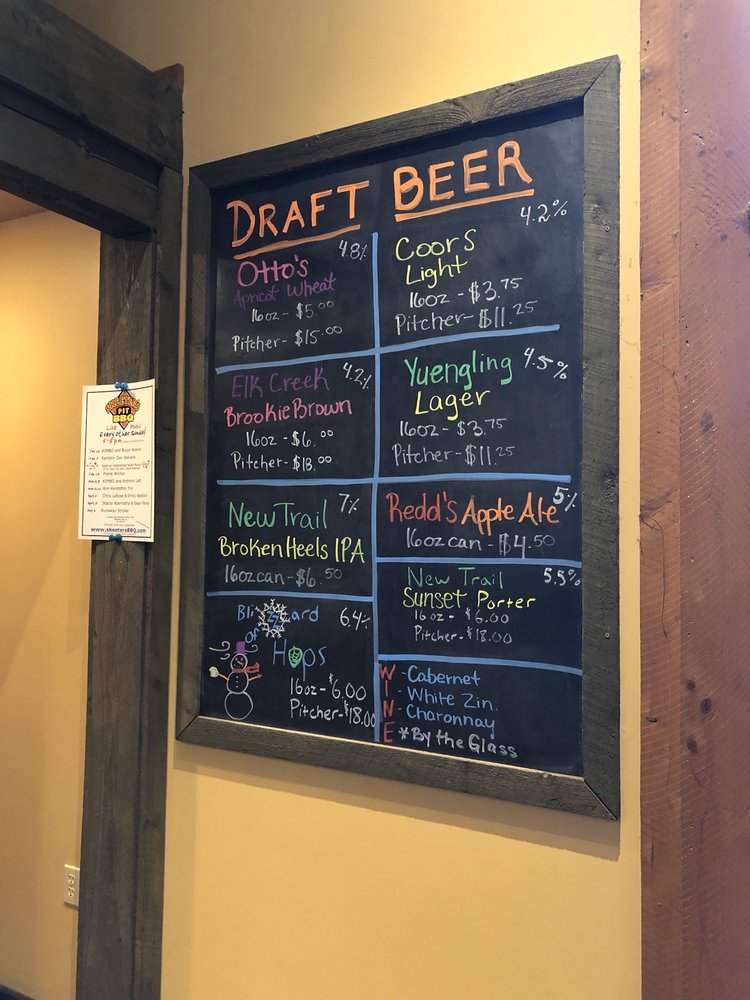 DRAFT BEER
4.8%
Otto's
Apricot Wheat
16oz - $5.00
Pitcher- $15.00
Elk Creek 4.2%
Brookie Brown
16oz - $6.00
Pitcher- $18.00
7%
New Trail
Broken Heels IPA
16oz can - $6.50
Blizzard 6.4%
of
Hops
16oz - $6.00
Pitcher- $18.00
4.2%
Coors
Light
16oz - $3.75
Pitcher- $11.25
Yuengling 4.5%
Lager
16oz - $3.75
Pitcher- $11.25
5%
Redd's Apple Ale
16oz can - $4.50
New Trail 5.5%
Sunset Porter
16oz - $6.00
Pitcher- $18.00
WINE
- Cabernet
- White Zin.
- Charonnay
*By the Glass
PIT
BBQ
Live Music
Every other Sunday
KIMBO and Bryan Noker
Ramblin Dan Stevens
Frank Wicher
KIMBO and Anthony
Ann Kerstetter Trio
Chris LaRose & Emily
Stacia Abernatha & Sean Farley
Runaway Stroller
www.skeetersBBQ.com